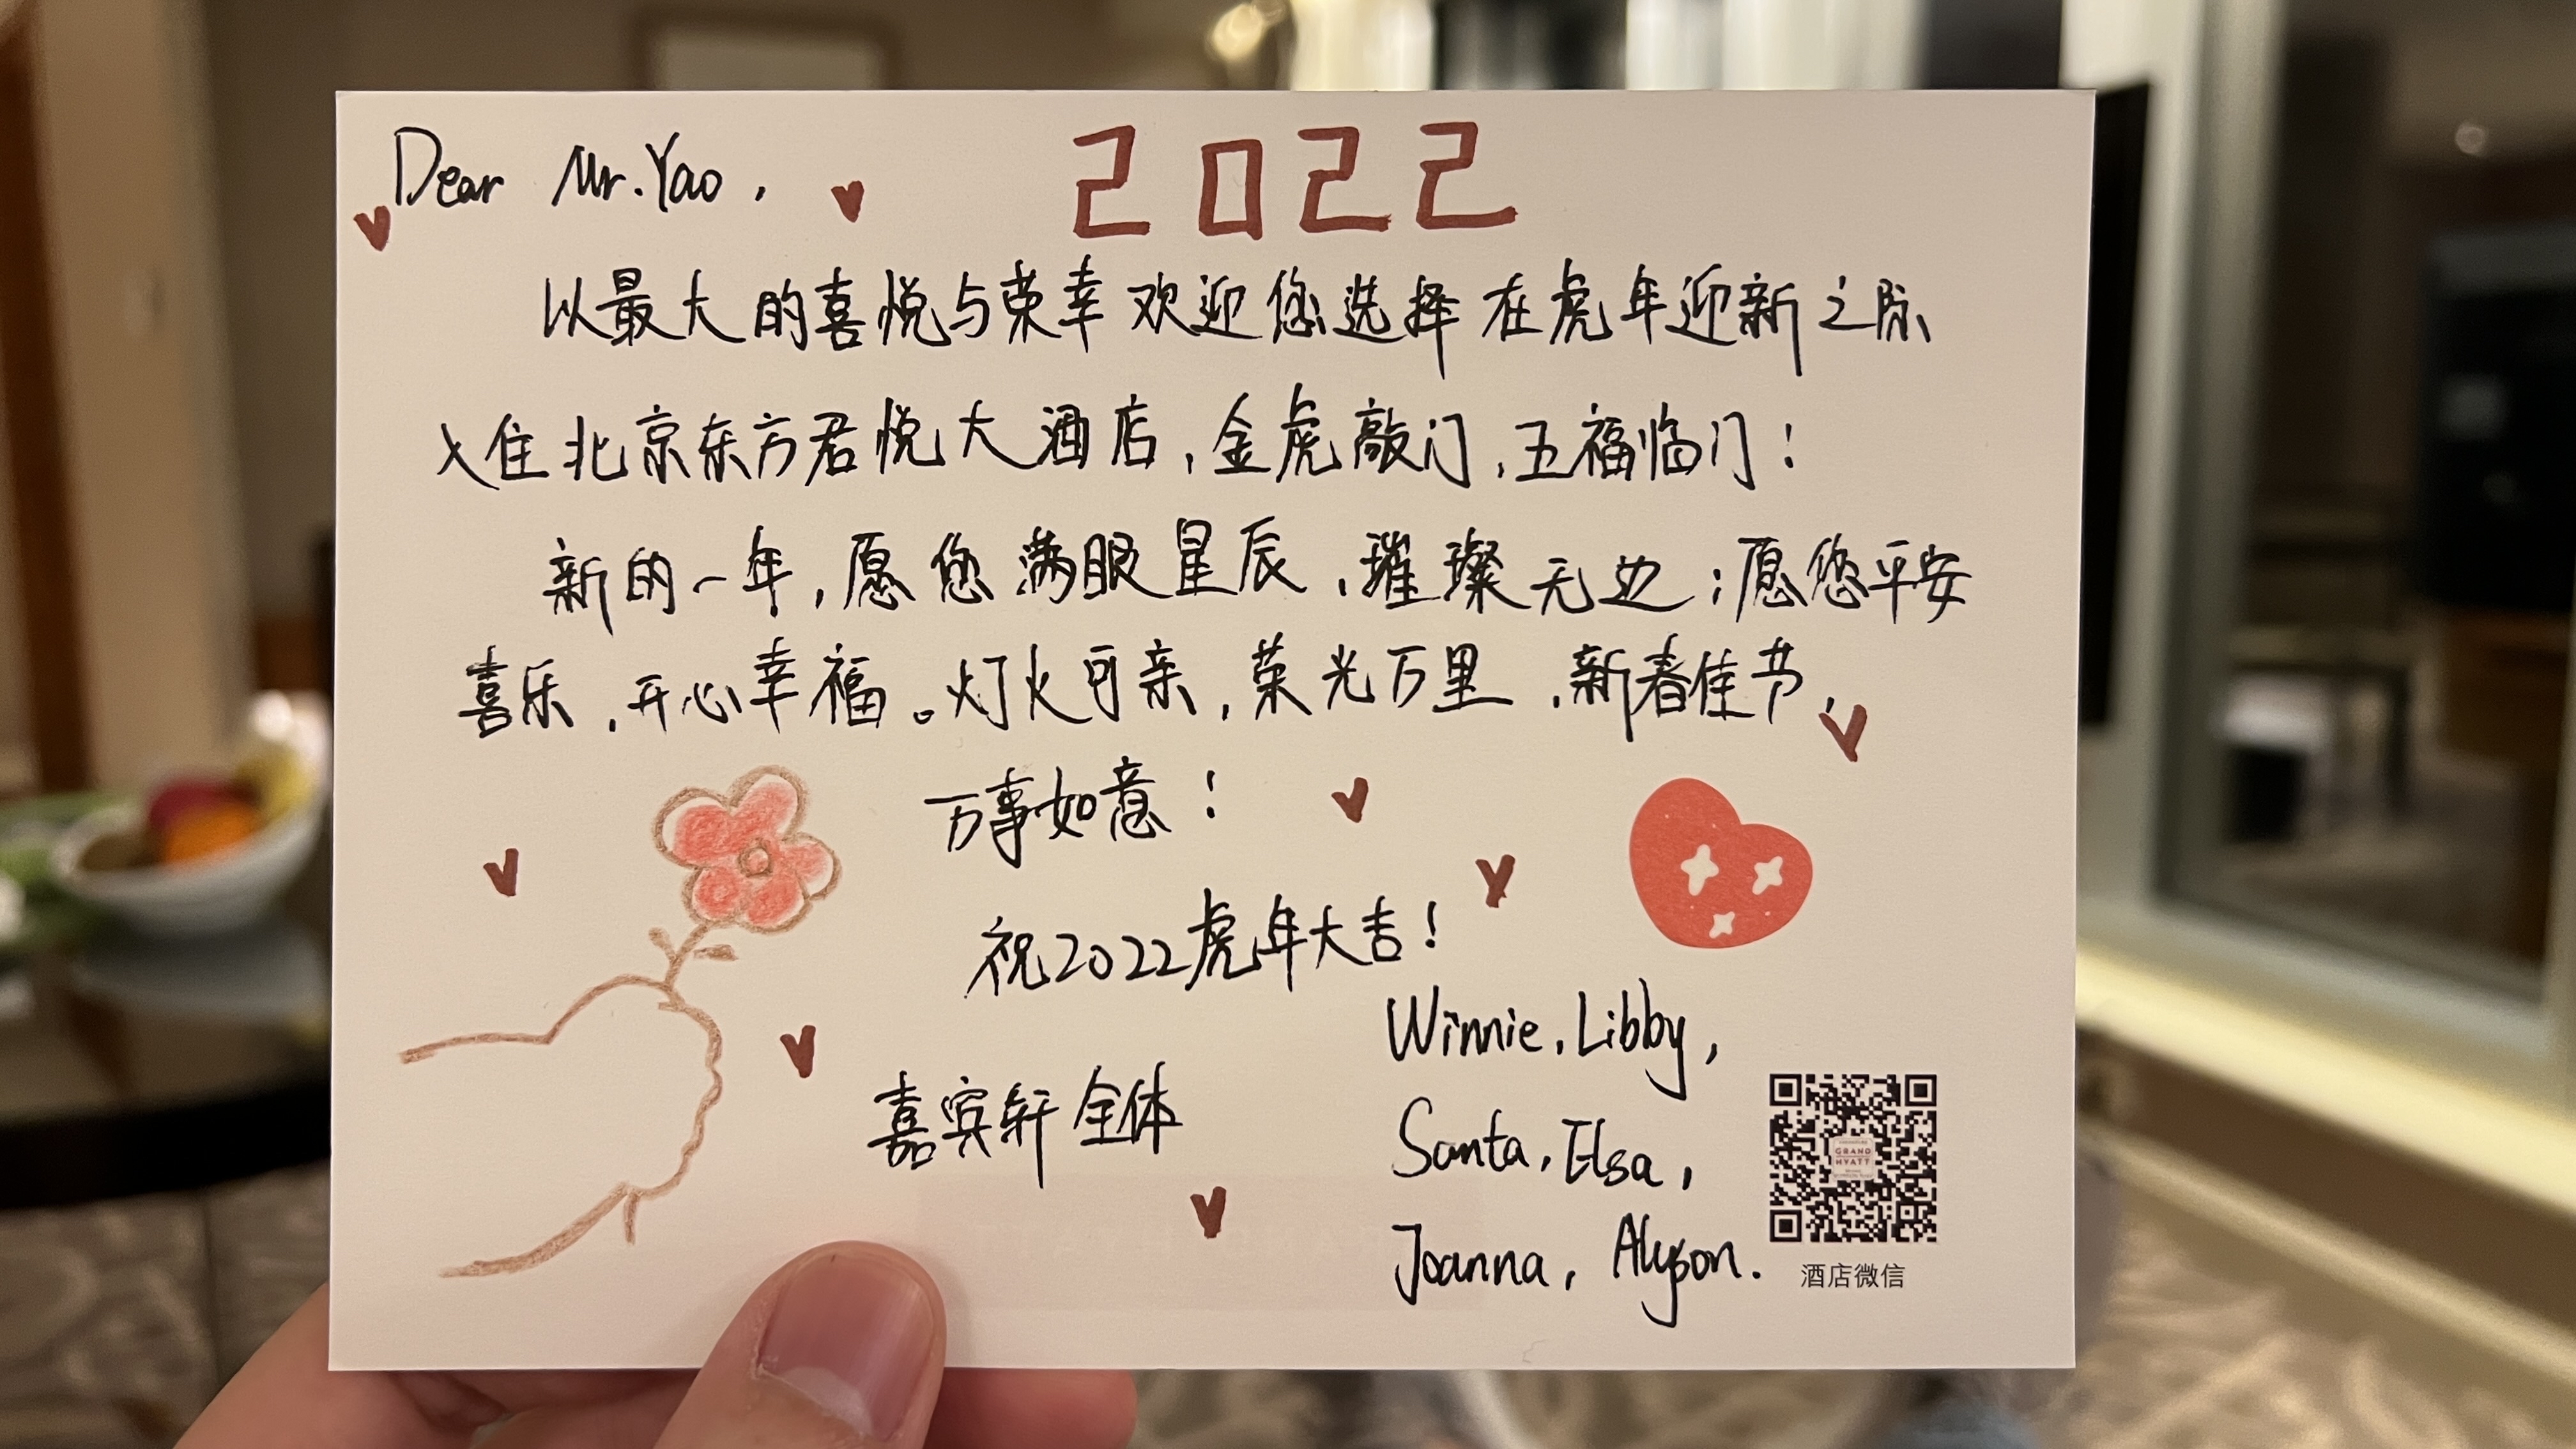 Dear Mr.Yao,
2022
以最大的喜悦与荣幸欢迎您选择在虎年迎新之际
入住北京东方君悦大酒店,金虎敲门,五福临门!
新的一年,愿您满眼星辰,璀璨无边;愿您平安
喜乐,开心幸福。灯火可亲,荣光万里,新春佳节,
万事如意!
祝2022虎年大吉!
嘉宾轩全体
Winnie, Libby,
Santa, Elsa,
Joanna, Alyson.
GRAND
HYATT
酒店微信